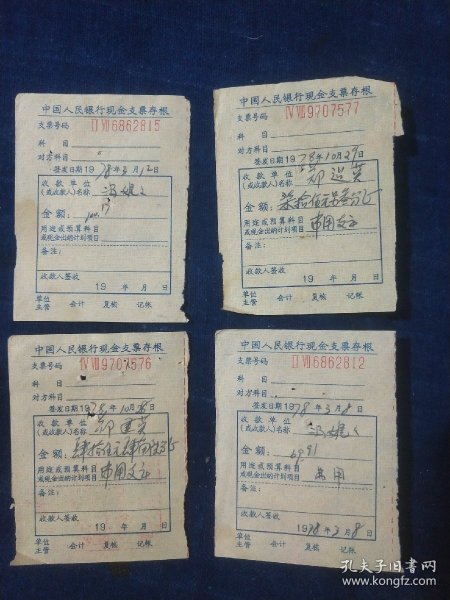 中国人民银行现金支票存根
支票号码 ⅡⅦ6862815
科 目
对方科目
签发日期1978年3月12日
收款单位
(或收款人)名称
金额:
用途或预算科目
或现金出纳计划项目
备注:
收款人签收
19 年 月 日
单位
主管 会计 复核 记帐
中国人民银行现金支票存根
支票号码 ⅣⅦ9707577
科 目
对方科目
签发日期1978年10月29日
收款单位
(或收款人)名称
金额:
用途或预算科目
或现金出纳计划项目
备注:
收款人签收
19 年 月 日
单位
主管 会计 复核 记帐
中国人民银行现金支票存根
支票号码 ⅣⅦ9707576
科 目
对方科目
签发日期1978年10月 日
收款单位
(或收款人)名称
金额:
用途或预算科目
或现金出纳计划项目
备注:
收款人签收
19 年 月 日
单位
主管 会计 复核 记帐
中国人民银行现金支票存根
支票号码 ⅡⅦ6862812
科 目
对方科目
签发日期1978年3月8日
收款单位
(或收款人)名称
金额: 69.91
用途或预算科目
或现金出纳计划项目
备注:
收款人签收
1978年3月8日
单位
主管 会计 复核 记帐
孔夫子旧书网
www.kongfz.com